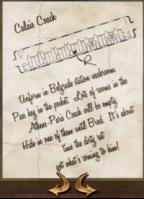 Calais Coach
Uniform in Belgrade station washroom
Pass key in the pocket. Lots of rooms in the
Athens-Paris Coach will be empty.
Hide in one of them until Brod. It's about
time the dirty rat
got what's coming to him!